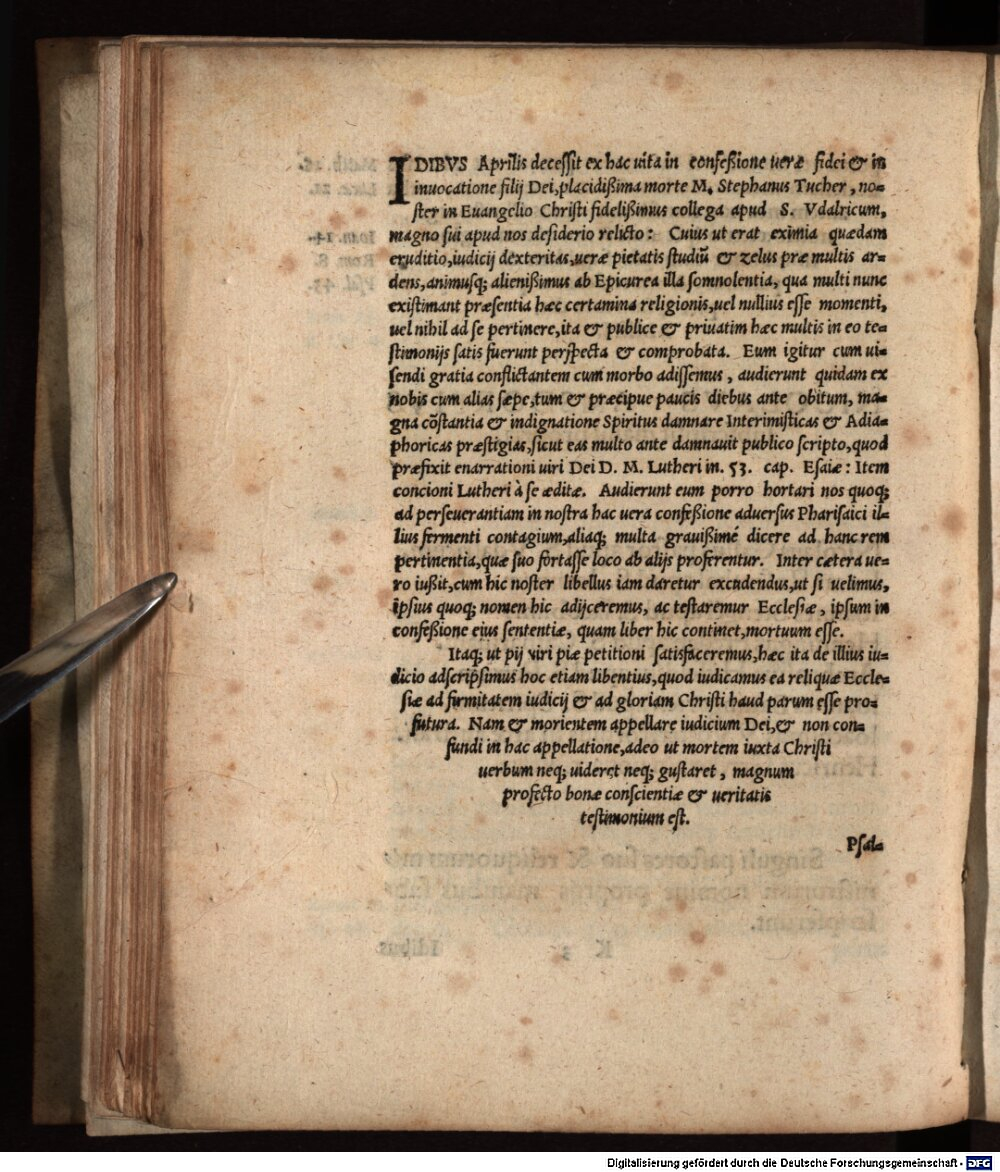 IDIBVS Aprilis decessit ex hac uita in confeßione ueræ fidei & in
inuocatione filij Dei, placidißima morte M. Stephanus Tucher, no-
ster in Euangelio Christi fidelißimus collega apud S. Vdalricum,
magno sui apud nos desiderio relicto: Cuius ut erat eximia quædam
eruditio, iudicij dexteritas, ueræ pietatis studiũ & zelus præ multis ar-
dens, animusq; alienißimus ab Epicurea illa somnolentia, qua multi nunc
existimant præsentia hæc certamina religionis, uel nullius esse momenti,
uel nihil ad se pertinere, ita & publice & priuatim hæc multis in eo te-
stimonijs satis fuerunt perspecta & comprobata. Eum igitur cum ui-
sendi gratia conflictantem cum morbo adissemus, audierunt quidam ex
nobis cum alias sæpe, tum & præcipue paucis diebus ante obitum, ma-
gna cõstantia & indignatione Spiritus damnare Interimisticas & Adia-
phoricas præstigias, sicut eas multo ante damnauit publico scripto, quod
præfixit enarrationi uiri Dei D. M. Lutheri in. 53. cap. Esaiæ: Item
concioni Lutheri à se æditæ. Audierunt eum porro hortari nos quoq;
ad perseuerantiam in nostra hac uera confeßione aduersus Pharisaici il-
lius fermenti contagium, aliaq; multa grauißimé dicere ad hanc rem
pertinentia, quæ suo fortasse loco ab alijs proferentur. Inter cætera ue-
ro iußit, cum hic noster libellus iam daretur excudendus, ut si uelimus,
ipsius quoq; nomen hic adijceremus, ac testaremur Ecclesiæ, ipsum in
confeßione eius sententiæ, quam liber hic continet, mortuum esse.
Itaq; ut pij viri piæ petitioni satisfaceremus, hæc ita de illius iu-
dicio adscripsimus hoc etiam libentius, quod iudicamus ea reliquæ Eccle-
siæ ad firmitatem iudicij & ad gloriam Christi haud parum esse pro-
futura. Nam & morientem appellare iudicium Dei, & non con-
fundi in hac appellatione, adeo ut mortem iuxta Christi
uerbum neq; uideret neq; gustaret, magnum
profecto bonæ conscientiæ & ueritatis
testimonium est.
Psal-
Digitalisierung gefördert durch die Deutsche Forschungsgemeinschaft - DFG